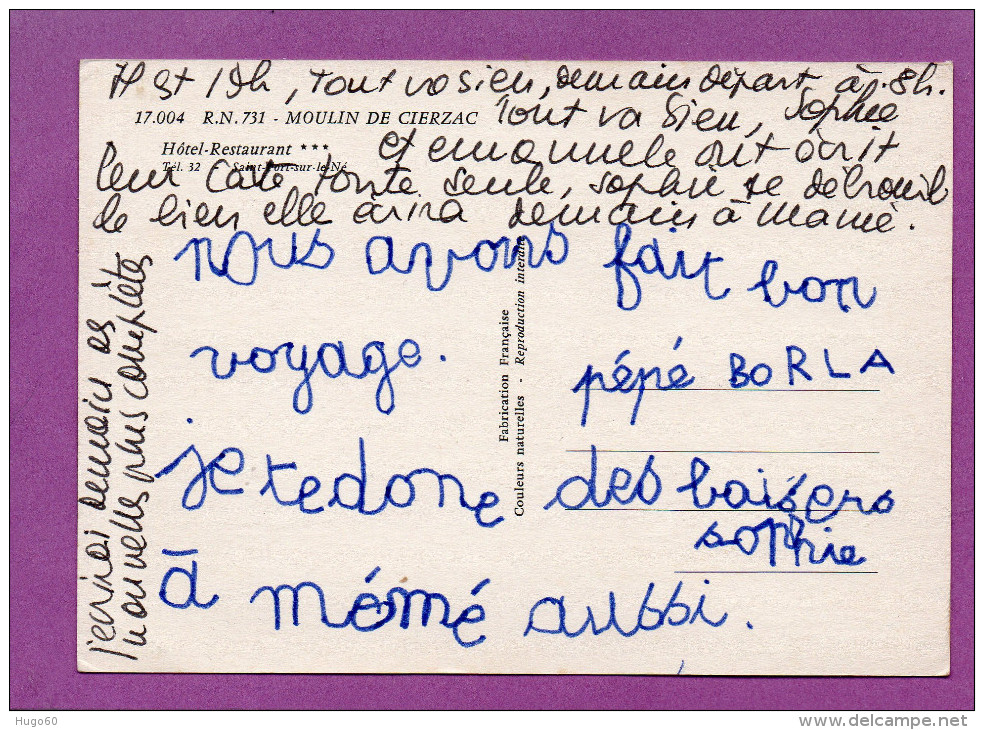 Il est 19h, tout va bien, demain départ à 8h.
17.004 R.N. 731 - MOULIN DE CIERZAC
Tout va bien, Sophie
Hôtel-Restaurant ***
et emmanuelle ont écrit
Tél. 32 Saint-Fort-sur-le-Né
leur carte toute seule, sophie se débrouil
le bien elle écrira demain à Mamé.
nous avons fait bon
voyage.
pépé BORLA
je te done des baisers
sophie
à mémé aussi.
j'écrirai demain des
nouvelles plus complètes
Fabrication Française
Couleurs naturelles - Reproduction interdite
Hugo60
delcampe.net